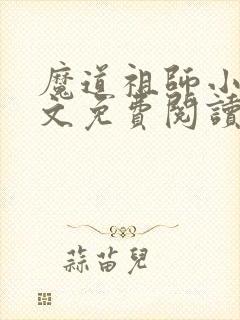 魔道祖師小
文免費閱讀
蒜苗兒